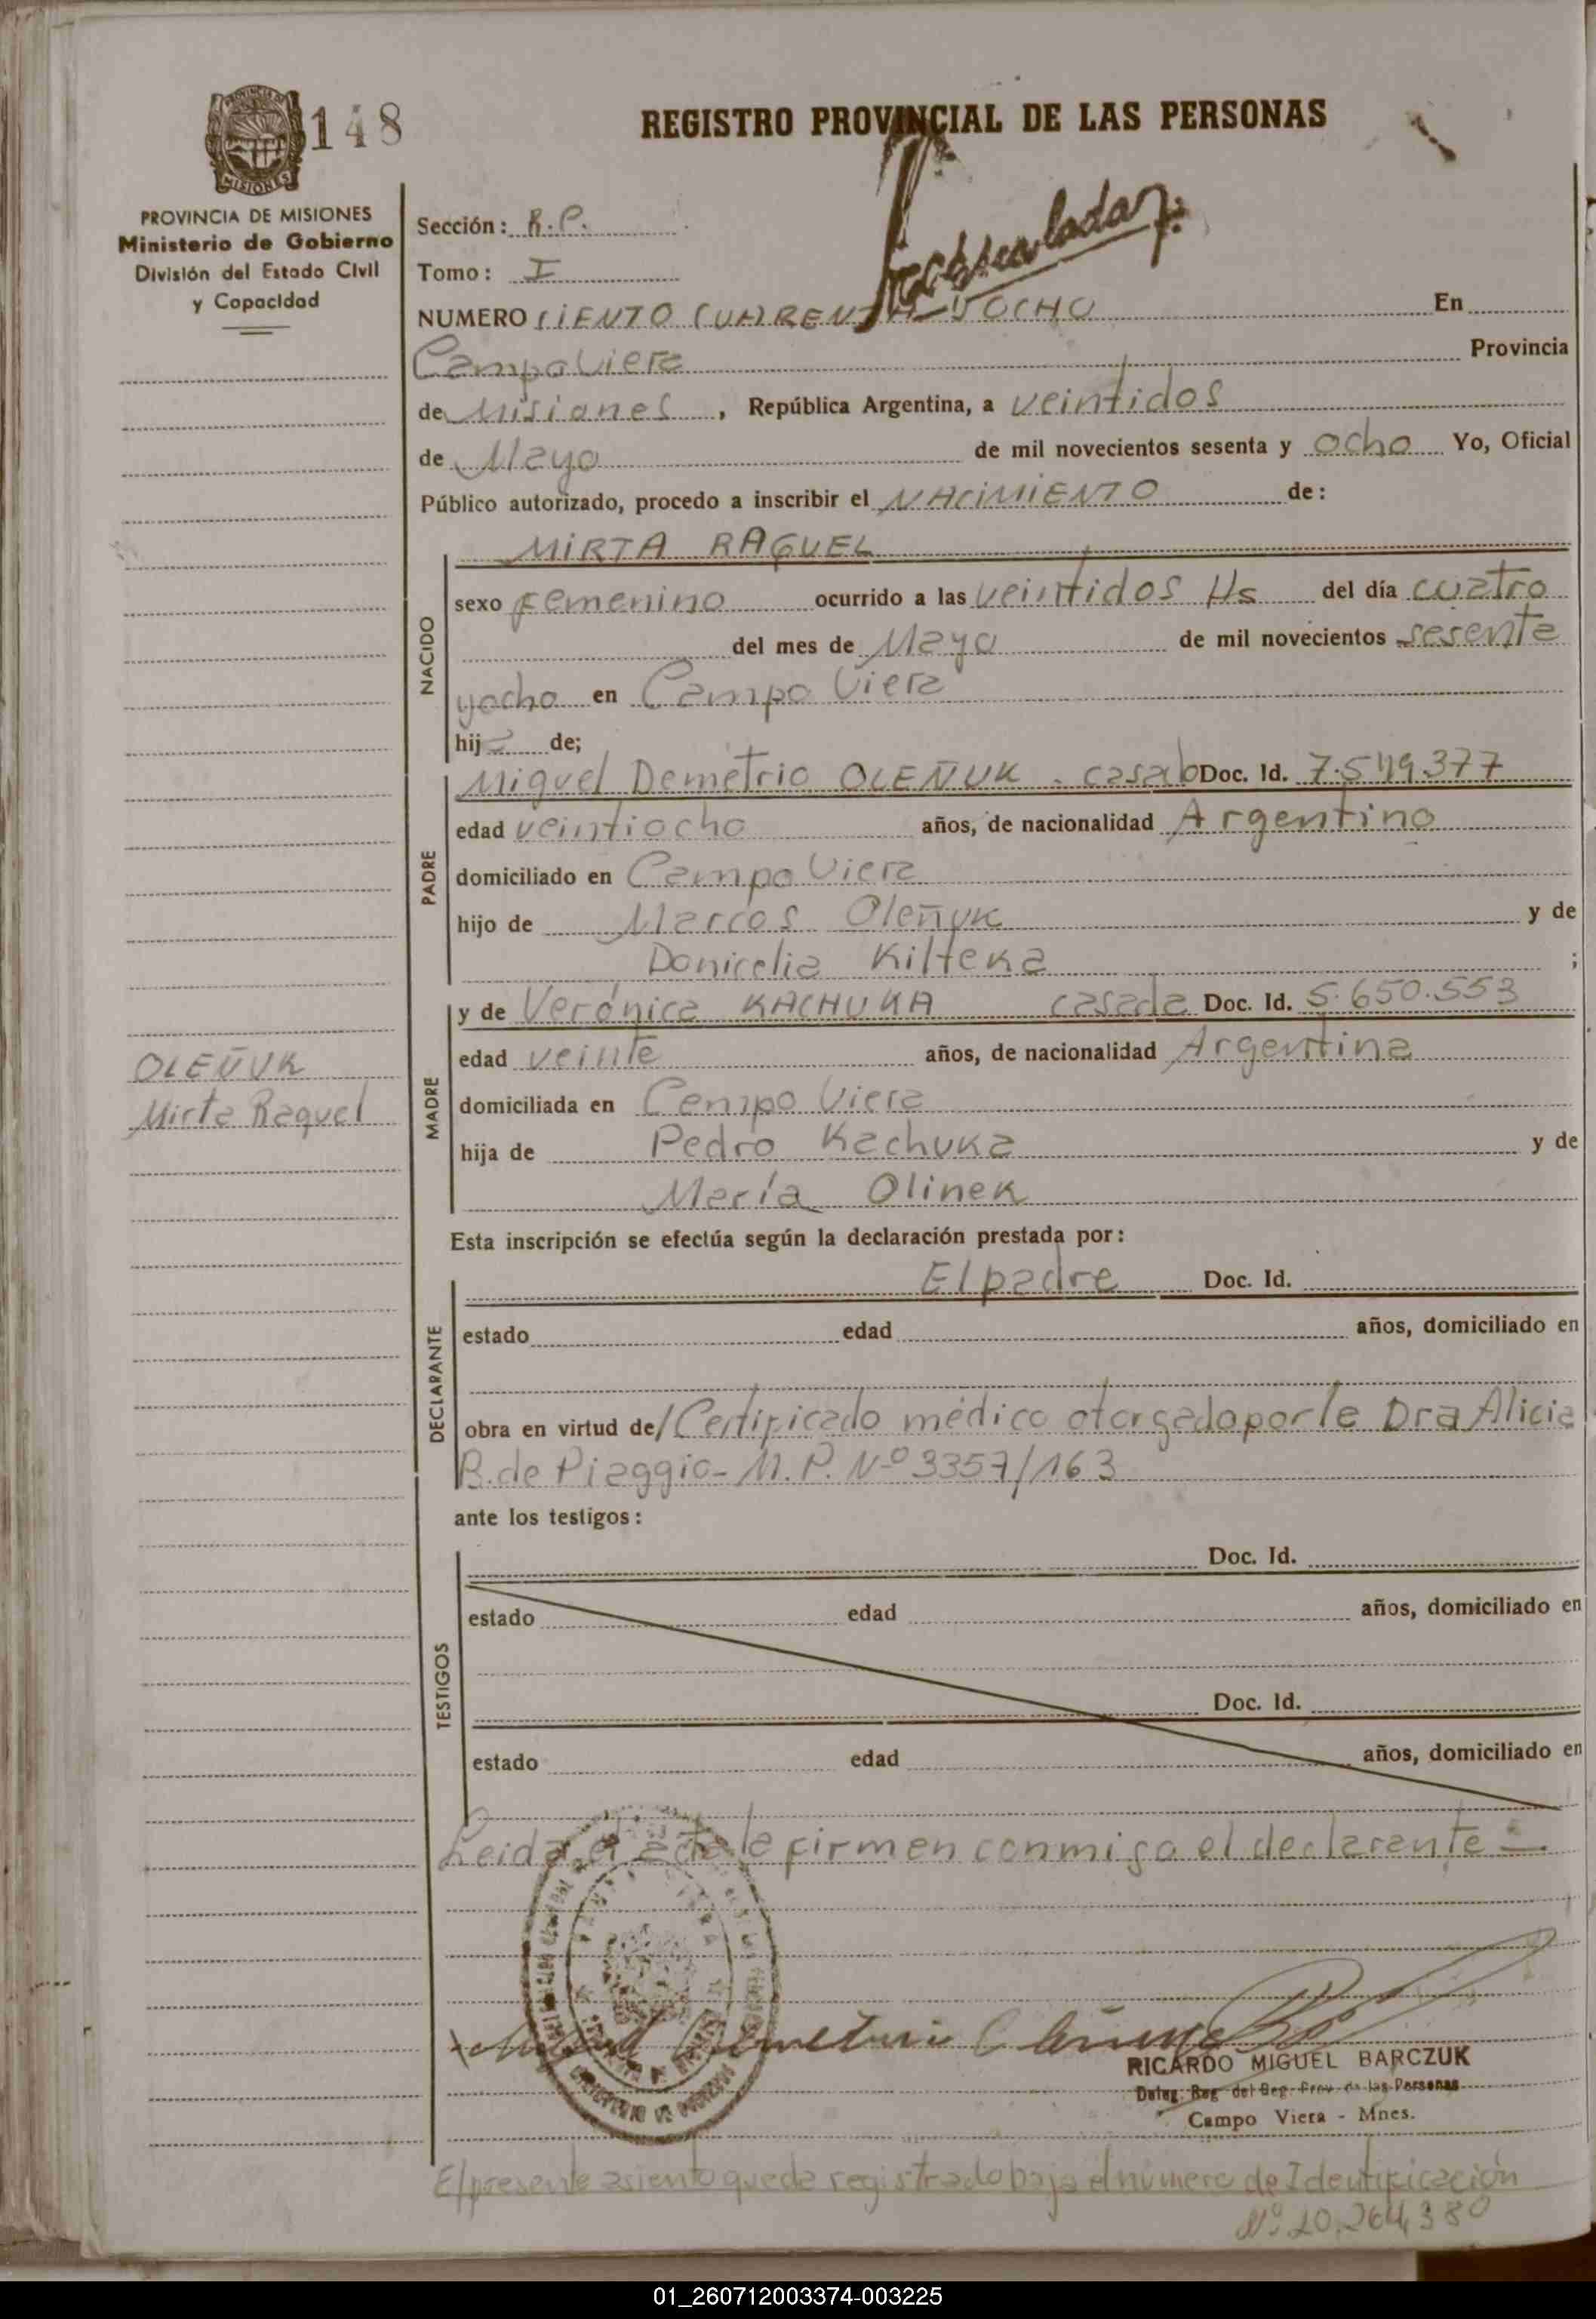 148
REGISTRO PROVINCIAL DE LAS PERSONAS
MISIONES
PROVINCIA DE MISIONES
Ministerio de Gobierno
División del Estado Civil
y Capacidad
Sección: R.P.
Tomo: I
NUMERO CIENTO CUARENTA Y OCHO En
Campo Viera Provincia
de Misiones, República Argentina, a veintidos
de Mayo de mil novecientos sesenta y ocho Yo, Oficial
Público autorizado, procedo a inscribir el NACIMIENTO de:
NACIDO
MIRTA RAQUEL
sexo femenino ocurrido a las veintidos Hs del día cuatro
del mes de Mayo de mil novecientos sesenta
y ocho en Campo Viera
hija de;
PADRE
Miguel Demetrio OLEÑUK - casado Doc. Id. 7.549.377
edad veintiocho años, de nacionalidad Argentino
domiciliado en Campo Viera
hijo de Marcos Oleñuk y de
Donicelia Kilteka ;
MADRE
y de Verónica KACHUKA casada Doc. Id. 5.650.553
edad veinte años, de nacionalidad Argentina
domiciliada en Campo Viera
hija de Pedro Kachuka y de
María Olinek
OLEÑUK
Mirta Raquel
Esta inscripción se efectúa según la declaración prestada por:
DECLARANTE
El padre Doc. Id.
estado edad años, domiciliado en
obra en virtud de/Certificado médico otorgado por la Dra Alicia
B. de Piaggio - M.P. Nº 3357/163
ante los testigos:
TESTIGOS
Doc. Id.
estado edad años, domiciliado en
Doc. Id.
estado edad años, domiciliado en
Leida el acta la firman conmigo el declarante -
Demetrio
RICARDO MIGUEL BARCZUK
Deleg. Reg. del Reg. Prov. de las Personas
Campo Viera - Mnes.
El presente asiento queda registrado bajo el número de Identificación
Nº 20.264.380
01_260712003374-003225